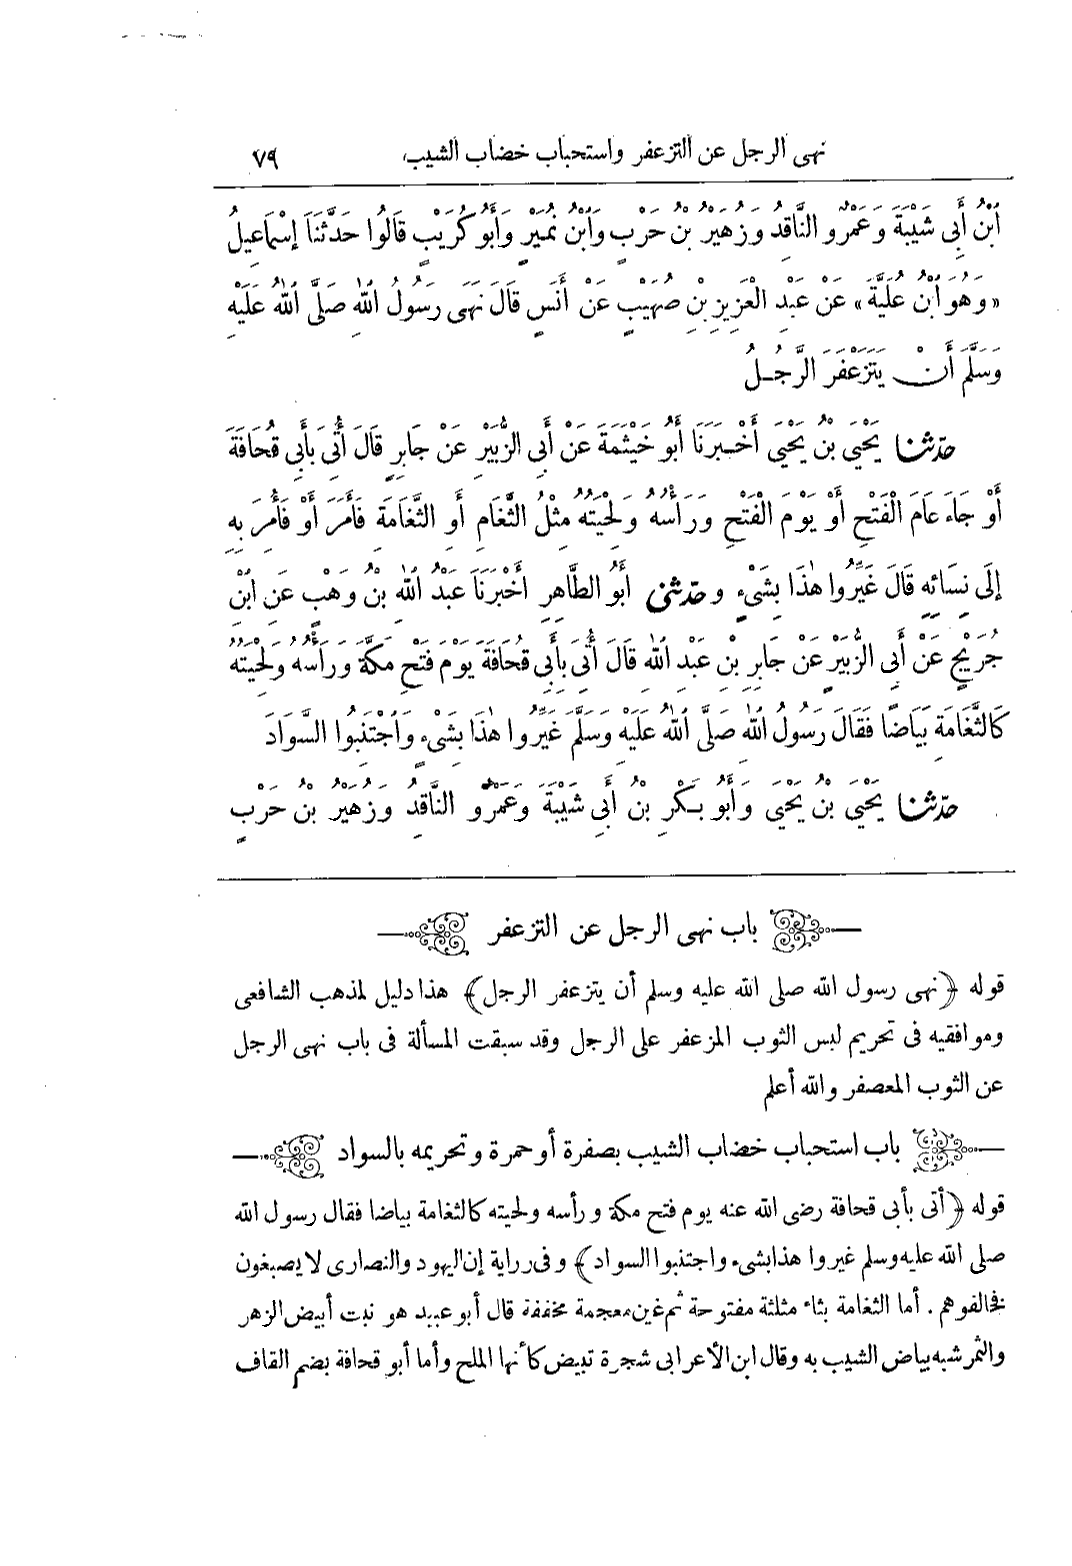 نهى الرجل عن التزعفر واستحباب خضاب الشيب ٧٩
ابْنُ أَبِى شَيْبَةَ وَعَمْرٌو النَّاقِدُ وَزُهَيْرُ بْنُ حَرْبٍ وَابْنُ نُمَيْرٍ وَأَبُو كُرَيْبٍ قَالُوا حَدَّثَنَا إِسْمَاعِيلُ
«وَهُوَ ابْنُ عُلَيَّةَ» عَنْ عَبْدِ الْعَزِيزِ بْنِ صُهَيْبٍ عَنْ أَنَسٍ قَالَ نَهَى رَسُولُ اللهِ صَلَّى اللهُ عَلَيْهِ
وَسَلَّمَ أَنْ يَتَزَعْفَرَ الرَّجُلُ
حدّثنا يَحْيَى بْنُ يَحْيَى أَخْبَرَنَا أَبُو خَيْثَمَةَ عَنْ أَبِى الزُّبَيْرِ عَنْ جَابِرٍ قَالَ أُتِىَ بِأَبِى قُحَافَةَ
أَوْ جَاءَ عَامَ الْفَتْحِ أَوْ يَوْمَ الْفَتْحِ وَرَأْسُهُ وَلِحْيَتُهُ مِثْلُ الثَّغَامِ أَوِ الثَّغَامَةِ فَأَمَرَ أَوْ فَأُمِرَ بِهِ
إِلَى نِسَائِهِ قَالَ غَيِّرُوا هٰذَا بِشَىْءٍ وحدّثنى أَبُو الطَّاهِرِ أَخْبَرَنَا عَبْدُ اللهِ بْنُ وَهْبٍ عَنِ ابْنِ
جُرَيْجٍ عَنْ أَبِى الزُّبَيْرِ عَنْ جَابِرِ بْنِ عَبْدِ اللهِ قَالَ أُتِىَ بِأَبِى قُحَافَةَ يَوْمَ فَتْحِ مَكَّةَ وَرَأْسُهُ وَلِحْيَتُهُ
كَالثَّغَامَةِ بَيَاضًا فَقَالَ رَسُولُ اللهِ صَلَّى اللهُ عَلَيْهِ وَسَلَّمَ غَيِّرُوا هٰذَا بِشَىْءٍ وَاجْتَنِبُوا السَّوَادَ
حدّثنا يَحْيَى بْنُ يَحْيَى وَأَبُو بَكْرِ بْنُ أَبِى شَيْبَةَ وَعَمْرٌو النَّاقِدُ وَزُهَيْرُ بْنُ حَرْبٍ
باب نهى الرجل عن التزعفر
قوله ﴿نهى رسول الله صلى الله عليه وسلم أن يتزعفر الرجل﴾ هذا دليل لمذهب الشافعى
وموافقيه فى تحريم لبس الثوب المزعفر على الرجل وقد سبقت المسألة فى باب نهى الرجل
عن الثوب المعصفر والله أعلم
باب استحباب خضاب الشيب بصفرة أو حمرة وتحريمه بالسواد
قوله ﴿أتى بأبى قحافة رضى الله عنه يوم فتح مكة ورأسه ولحيته كالثغامة بياضا فقال رسول الله
صلى الله عليه وسلم غيروا هذا بشىء واجتنبوا السواد﴾ وفى رراية إن اليهود والنصارى لا يصبغون
فخالفوهم. أما الثغامة بثاء مثلثة مفتوحة ثم غين معجمة مخففة قال أبو عبيد هو نبت أبيض الزهر
والثمر شبه بياض الشيب به وقال ابن الأعرابى شجرة تبيض كأنها الملح وأما أبو قحافة بضم القاف